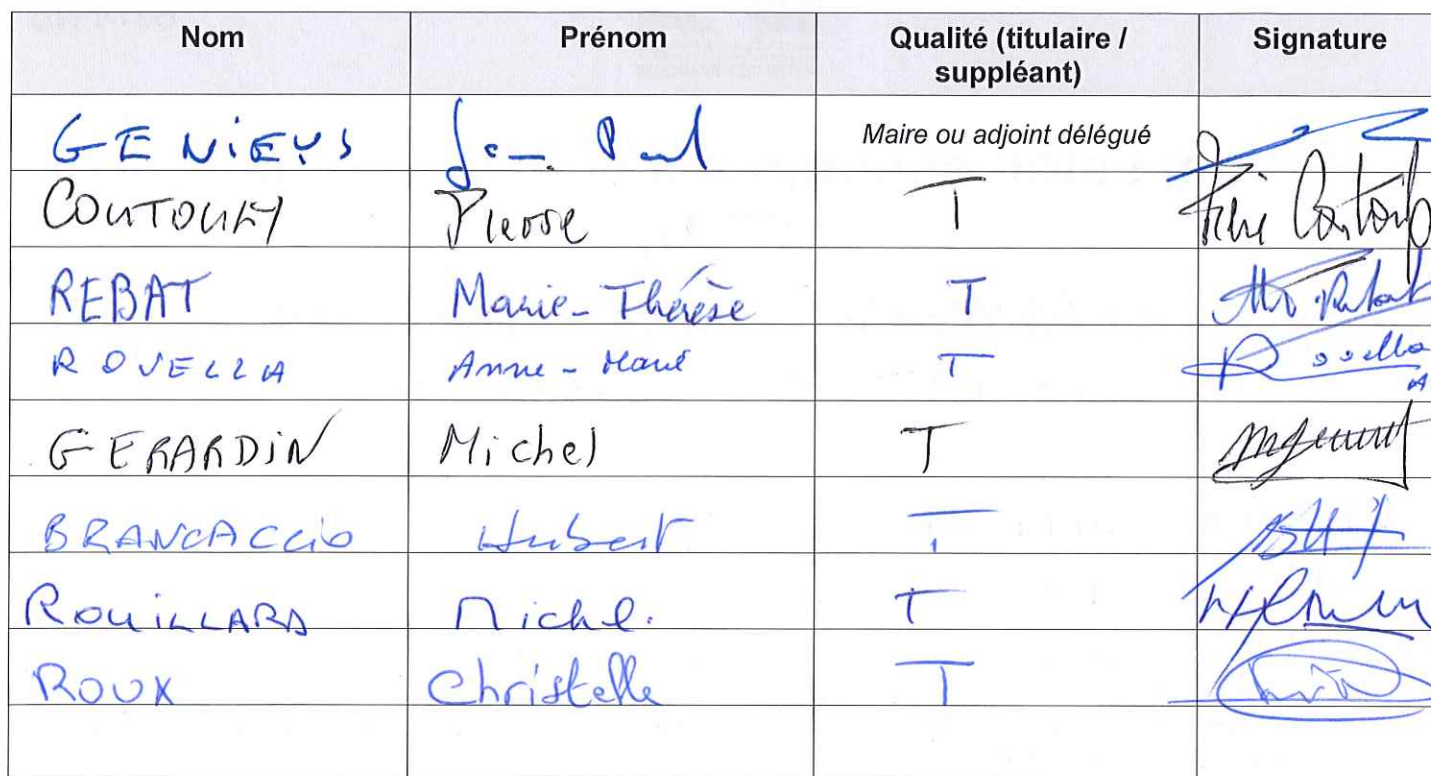 Nom Prénom Qualité (titulaire / suppléant) Signature
GENIEYS Jean Paul Maire ou adjoint délégué
COUTOULY Pierre T
REBAT Marie-Thérèse T
ROVELLA Anne-Marie T Rovella
GERARDIN Michel T
BRANCACCIO Hubert T
ROUILLARD Michel. T
ROUX Christelle T